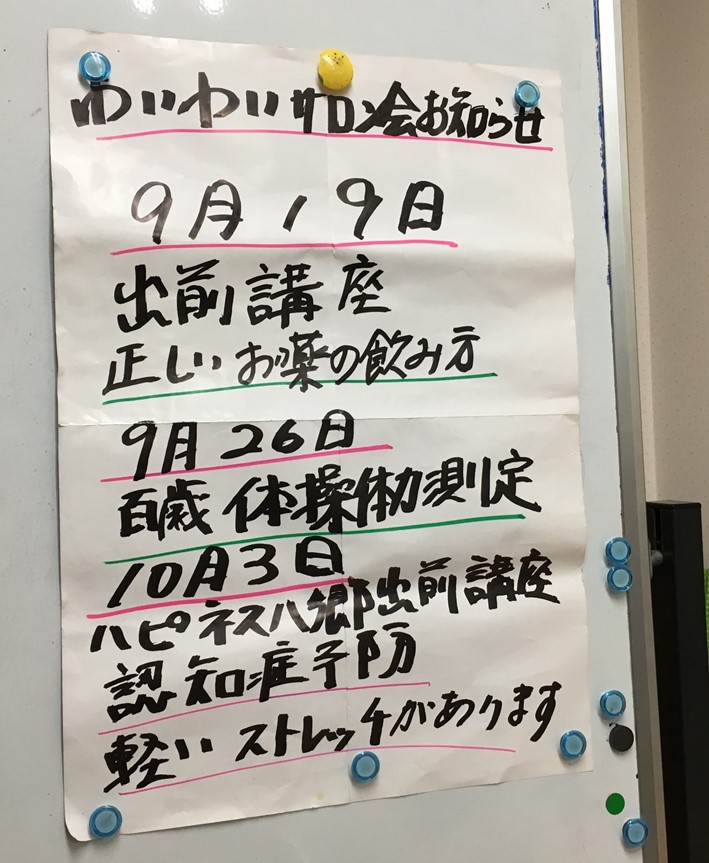 わいわいサロン会お知らせ
9月19日
出前講座
正しいお薬の飲み方
9月26日
百歳体操体力測定
10月3日
ハピネス八郷出前講座
認知症予防
軽いストレッチがあります